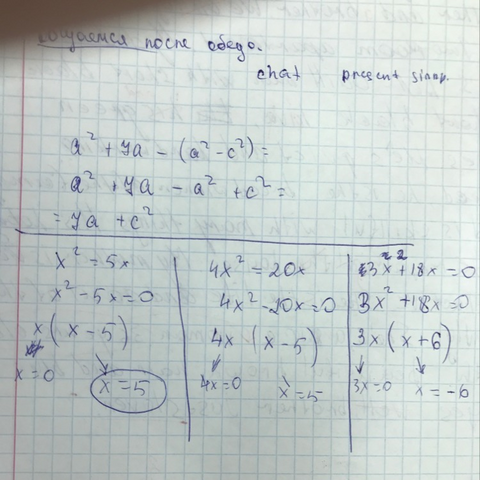 общаемся после обеда.
chat present simp.
a² + 7a - (a² - c²) =
a² + 7a - a² + c² =
= 7a + c²
x² = 5x
x² - 5x = 0
x (x - 5)
x = 0 x = 5
4x² = 20x
4x² - 20x = 0
4x (x - 5)
4x = 0 x = 5
3x² + 18x = 0
3x² + 18x = 0
3x (x + 6)
3x = 0 x = -6